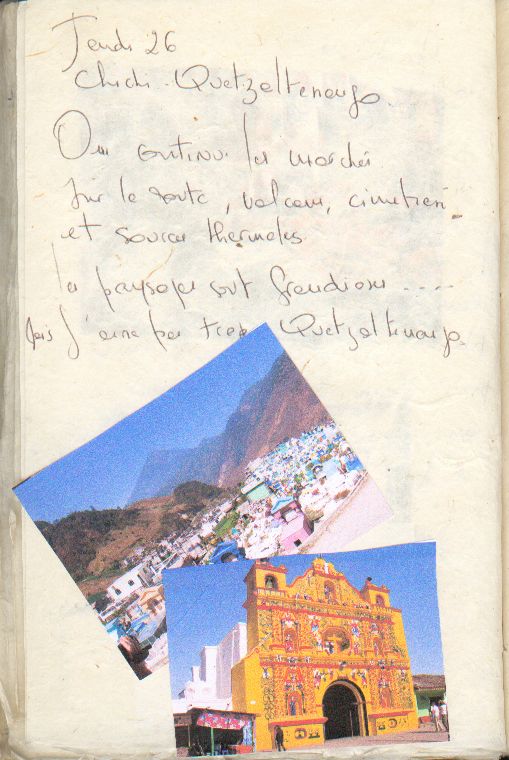 Jeudi 26
Chichi - Quetzaltenango
On continue les marchés
Sur la route, volcans, cimetières
et sources thermales.
Les paysages sont grandioses ....
Mais j'aime pas trop Quetzaltenango.